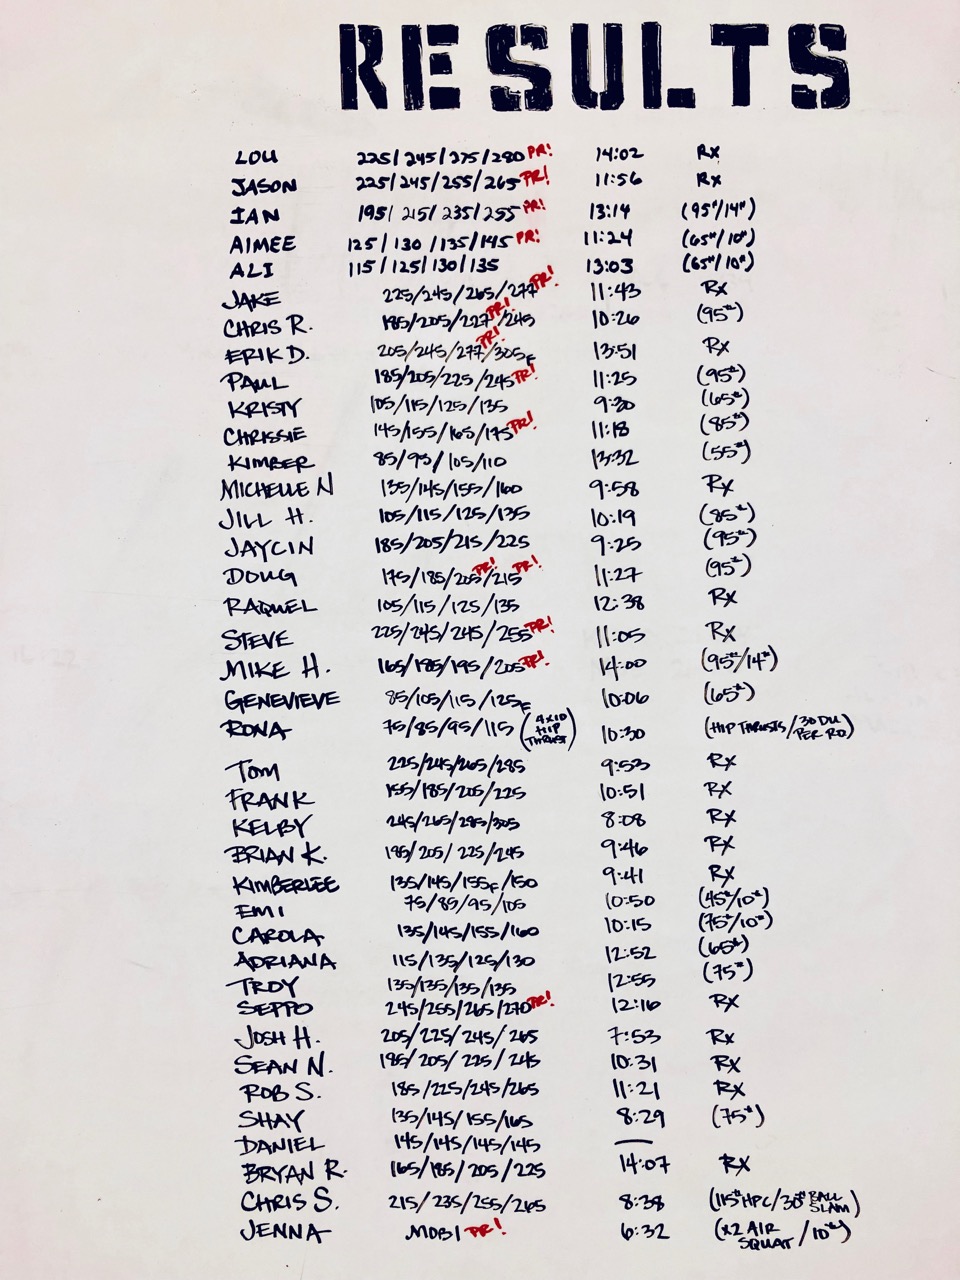 RESULTS
LOU 225/245/275/280 PR! 14:02 RX
JASON 225/245/255/265 PR! 11:56 RX
IAN 195/215/235/255 PR! 13:14 (95#/14#)
AIMEE 125/130/135/145 PR! 11:24 (65#/10#)
ALI 115/125/130/135 13:03 (65#/10#)
JAKE 225/245/265/277 PR! 11:43 RX
CHRIS R. 185/205/227 PR!/245 10:26 (95#)
ERIK D. 205/245/277 PR!/305F 13:51 RX
PAUL 185/205/225/245 PR! 11:25 (95#)
KRISTY 105/115/125/135 9:30 (65#)
CHRISSIE 145/155/165/175 PR! 11:18 (85#)
KIMBER 85/95/105/110 13:32 (55#)
MICHELLE N 135/145/155/160 9:58 RX
JILL H. 105/115/125/135 10:19 (85#)
JAYCIN 185/205/215/225 9:25 (95#)
DOUG 175/185/205 PR!/215 PR! 11:27 (95#)
RAQUEL 105/115/125/135 12:38 RX
STEVE 225/245/245/255 PR! 11:05 RX
MIKE H. 165/185/195/205 PR! 14:00 (95#/14#)
GENEVIEVE 85/105/115/125F 10:06 (65#)
RONA 75/85/95/115 (4X10 HIP THRUST) 10:30 (HIP THRUSTS/30 DU PER RD)
TOM 225/245/265/285 9:53 RX
FRANK 155/185/205/225 10:51 RX
KELBY 245/265/285/305 8:08 RX
BRIAN K. 185/205/225/245 9:46 RX
KIMBERLEE 135/145/155F/150 9:41 RX
EMI 75/85/95/105 10:50 (45#/10#)
CAROLA 135/145/155/160 10:15 (75#/10#)
ADRIANA 115/135/125/130 12:52 (65#)
TROY 135/135/135/135 12:55 (75#)
SEPPO 245/255/265/270 PR! 12:16 RX
JOSH H. 205/225/245/265 7:53 RX
SEAN N. 185/205/225/245 10:31 RX
ROB S. 185/225/245/265 11:21 RX
SHAY 135/145/155/165 8:29 (75#)
DANIEL 145/145/145/145 —
BRYAN R. 165/185/205/225 14:07 RX
CHRIS S. 215/235/255/265 8:38 (115# HPC/30# BALL SLAM)
JENNA MOBI PR! 6:32 (X2 AIR SQUAT/10#)